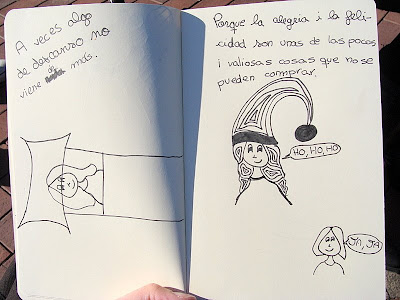 A veces algo
de descanso no
viene de más.
Porque la alegria i la feli-
cidad son unas de las pocas
i valiosas cosas que no se
pueden comprar.
HO, HO, HO
JA, JA